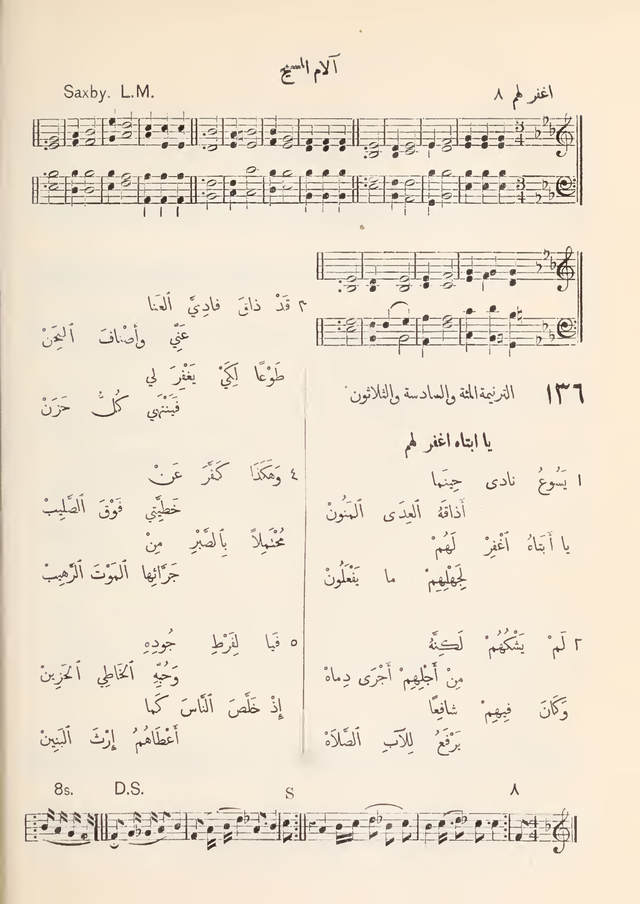 آلام المسيح
اغفر لهم ٨
Saxby. L.M.
١٣٦ الترنيمة المئة والسادسة والثلاثون
يا ابتاه اغفر لهم
١ يَسُوعُ نادى حِينَما
أَذاقَهُ ٱلعِدَى ٱلمَنُونْ
يا أَبَتاهُ ٱغْفِرْ لَهُمْ
لِجَهْلِهِمْ ما يَفْعَلُونْ
٢ لَمْ يَشْكُهُمْ لَكِنَّهُ
مِنْ أَجْلِهِمْ أَجْرَى دِماهْ
وَكَانَ فِيهِمْ شافِعًا
يَرْفَعُ لِلآبِ ٱلصَّلاَهْ
٣ قَدْ ذاقَ فادِيَّ ٱلعَنا
عَنِّي وأَصْنافَ ٱلمِحَنْ
طَوْعًا لِكَيْ يَغْفِرَ لي
فَيَنْتَهِي كُلُّ حَزَنْ
٤ وَهَكَذَا كَفَّرَ عَنْ
خَطِيَّتِي فَوْقَ ٱلصَّلِيبْ
مُحْتَمِلاً بِٱلصَّبْرِ مِنْ
جَرَّائِها ٱلمَوْتَ ٱلرَّهِيبْ
٥ فَيا لِفَرْطِ جُودِهِ
وَحُبِّهِ ٱلخَاطِي ٱلحَزِينْ
إِذْ خَلَّصَ ٱلنَّاسَ كَما
أَعْطَاهُمُ إِرْثَ ٱلبَنِينْ
8s. D.S. S ٨